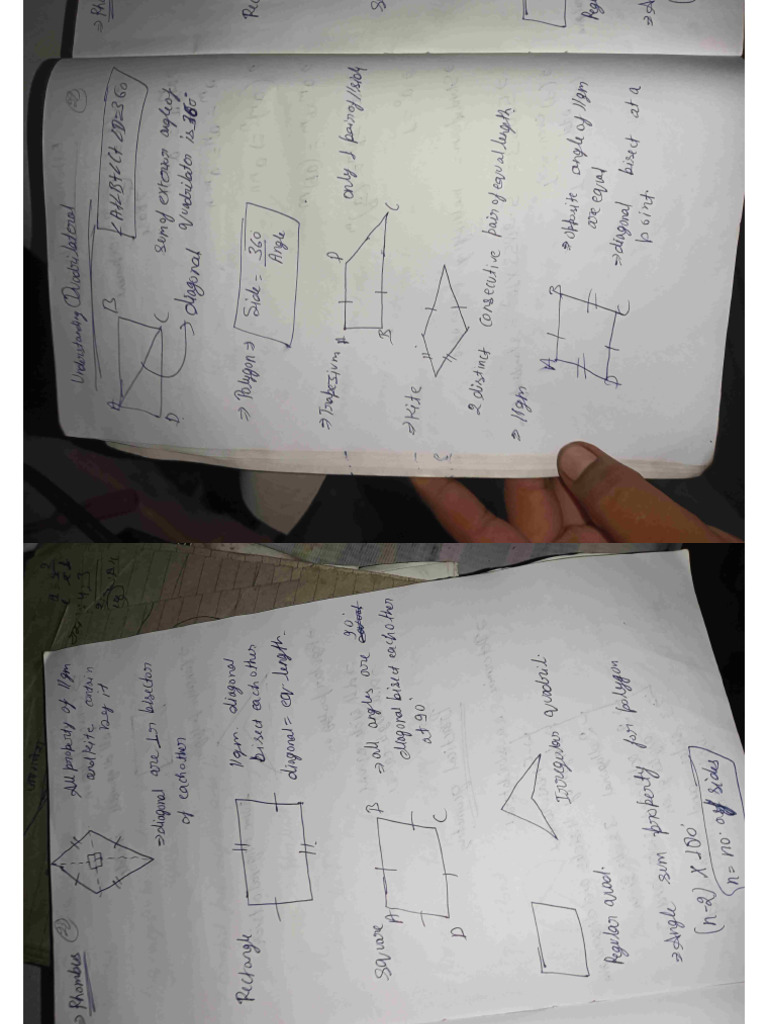 Understanding Quadrilaterial
A
B
C
D
<A+<B+<C+<D=360
sum of exterior angle of
quadrilator is 360°
→ diagonal
⇒ Polygon ⇒
Side = 360
Angle
⇒ Trapesium
A
P
B
C
only 1 pair of || side
⇒ Kite
2 distinct consecutive pair of equal length
⇒ ||gm
A
B
C
D
⇒ opposite angle of ||gm
are equal
⇒ diagonal bisect at a
point.
⇒ Rhombus
All property of ||gm
and kite contain
by it
⇒ diagonal are ⊥r bisector
of each other
Rectangle
||gm diagonal
bisect each other
diagonal = eq. length.
Square
A
B
C
D
⇒ all angles are 90°
diagonal bisect each other
at 90°
Regular quad.
Irregular quadril.
⇒ Angle sum property for polygon
(n-2) × 180°
n = no. of sides